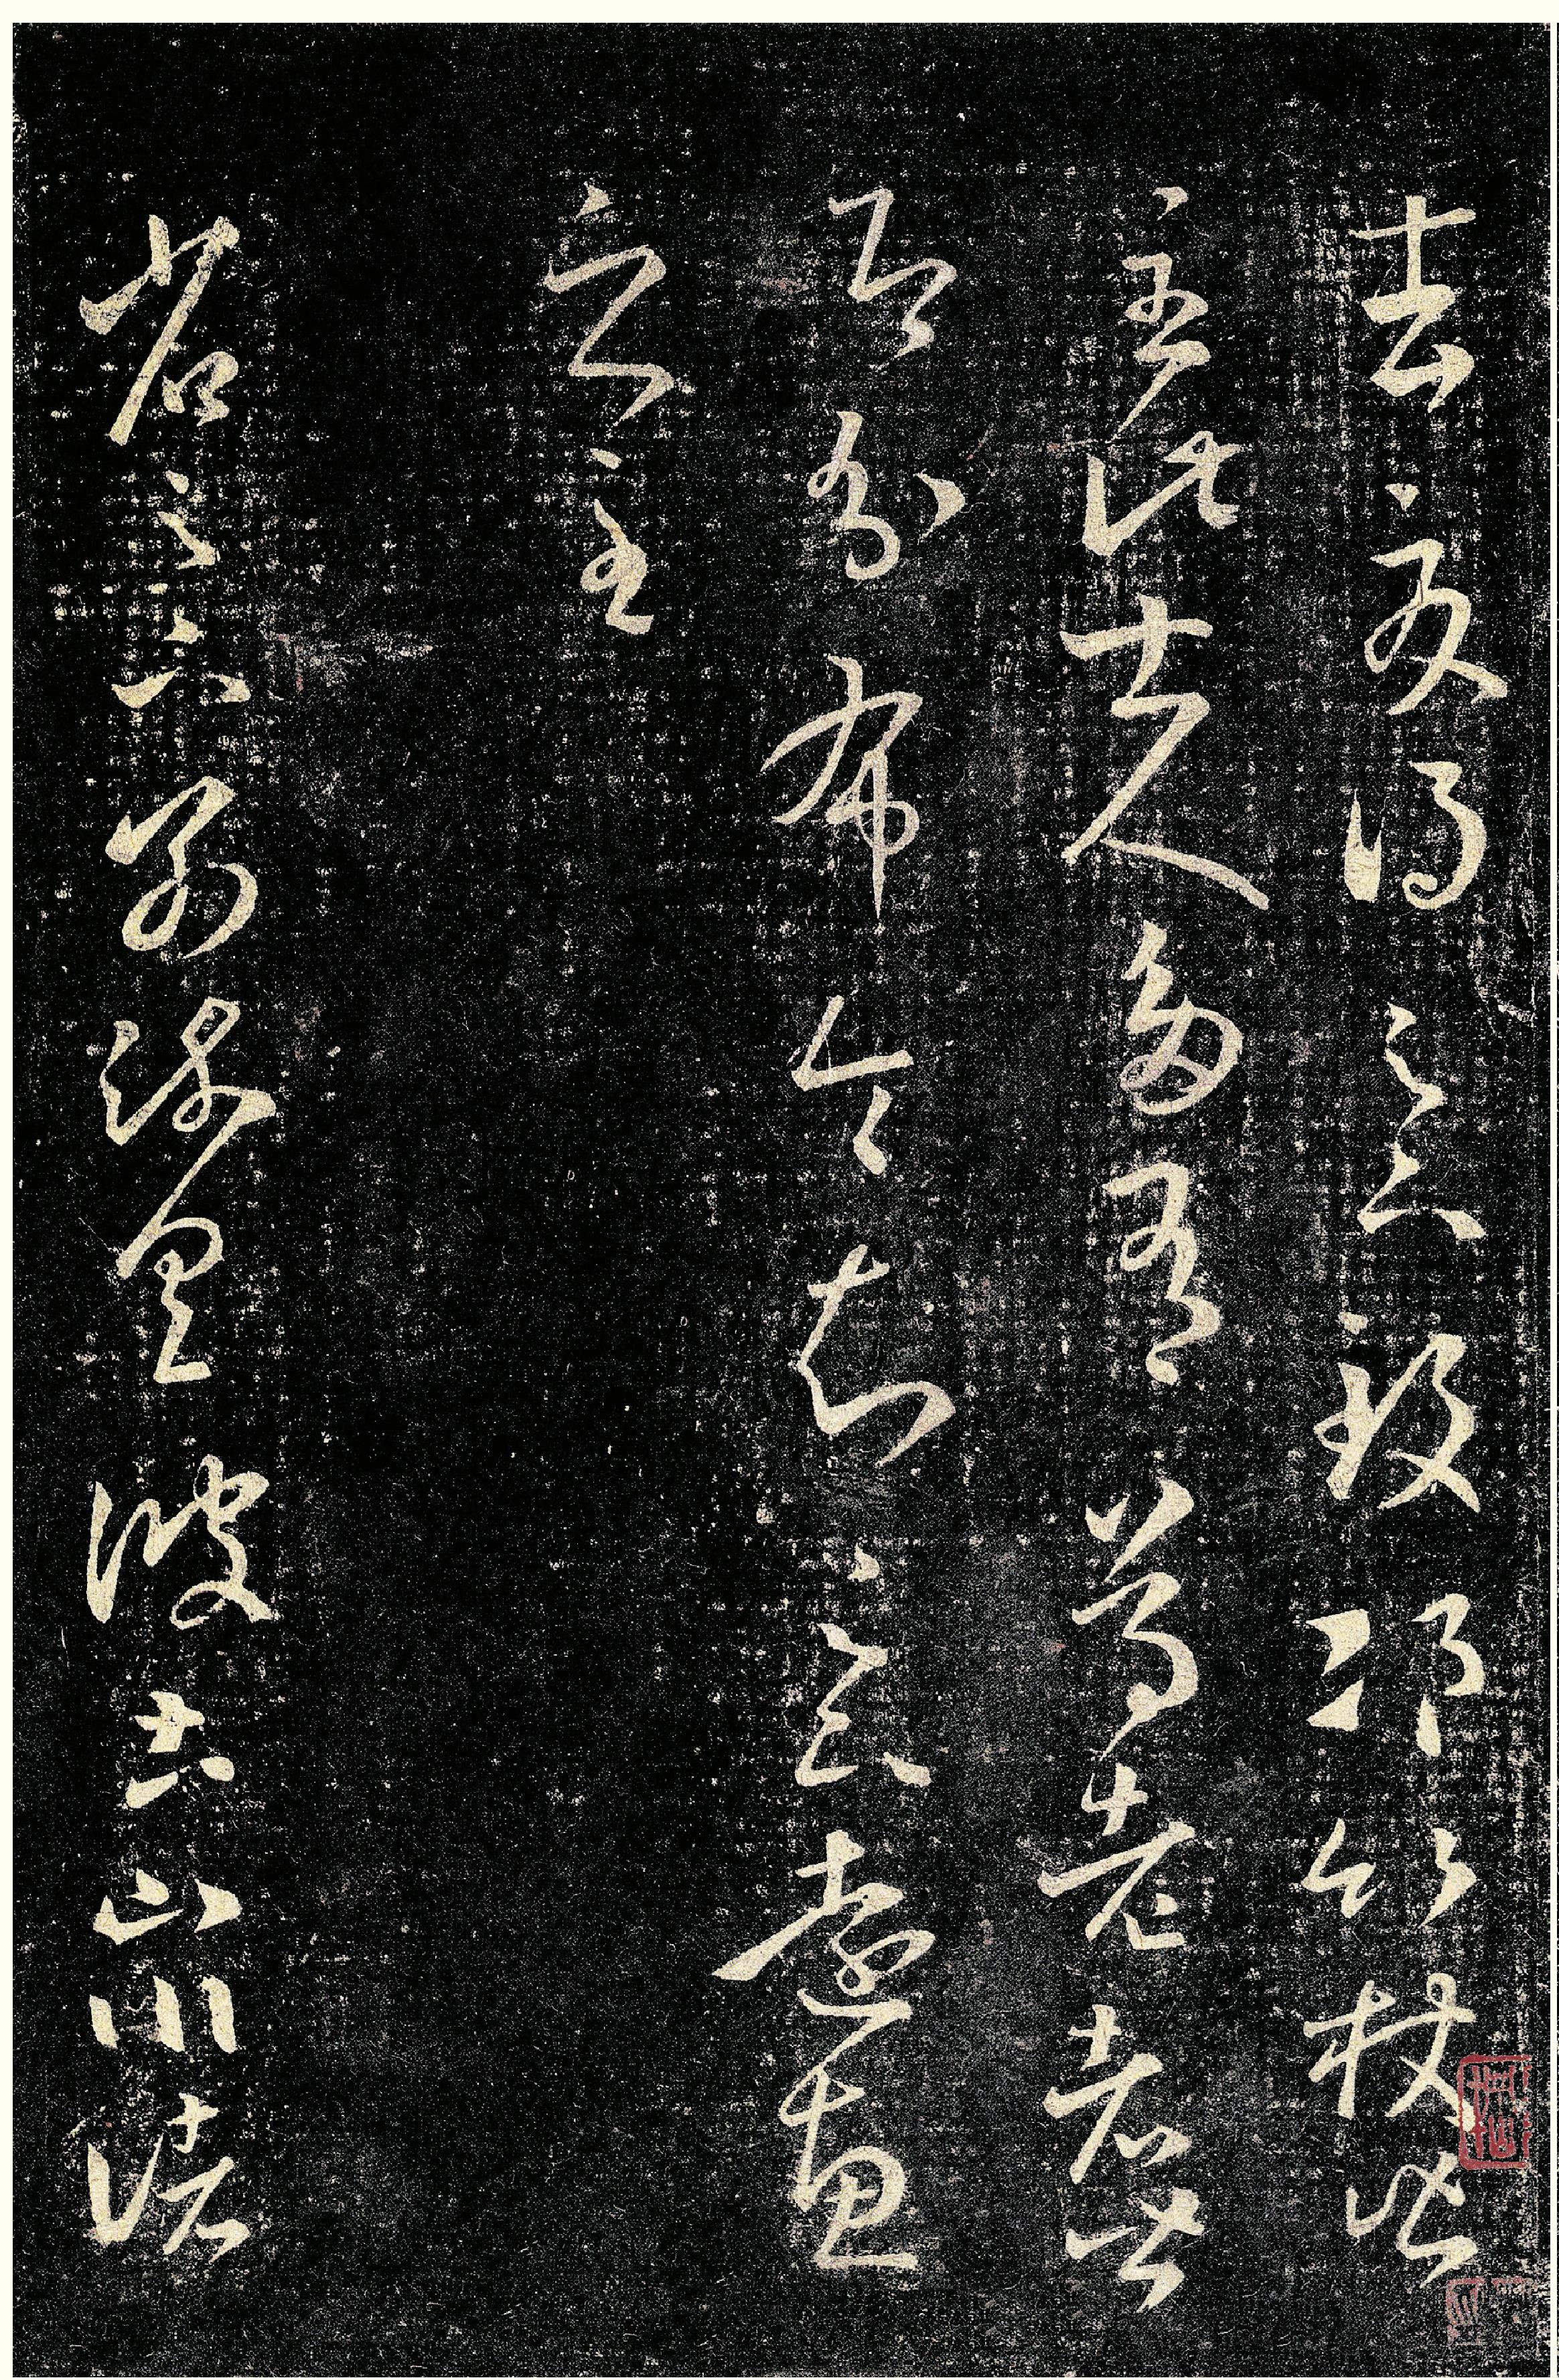 去夏得足下致邛竹杖皆
至此士人多有尊老者皆
即分布令知足下遠惠
之至
省足下別疏具彼土山川諸